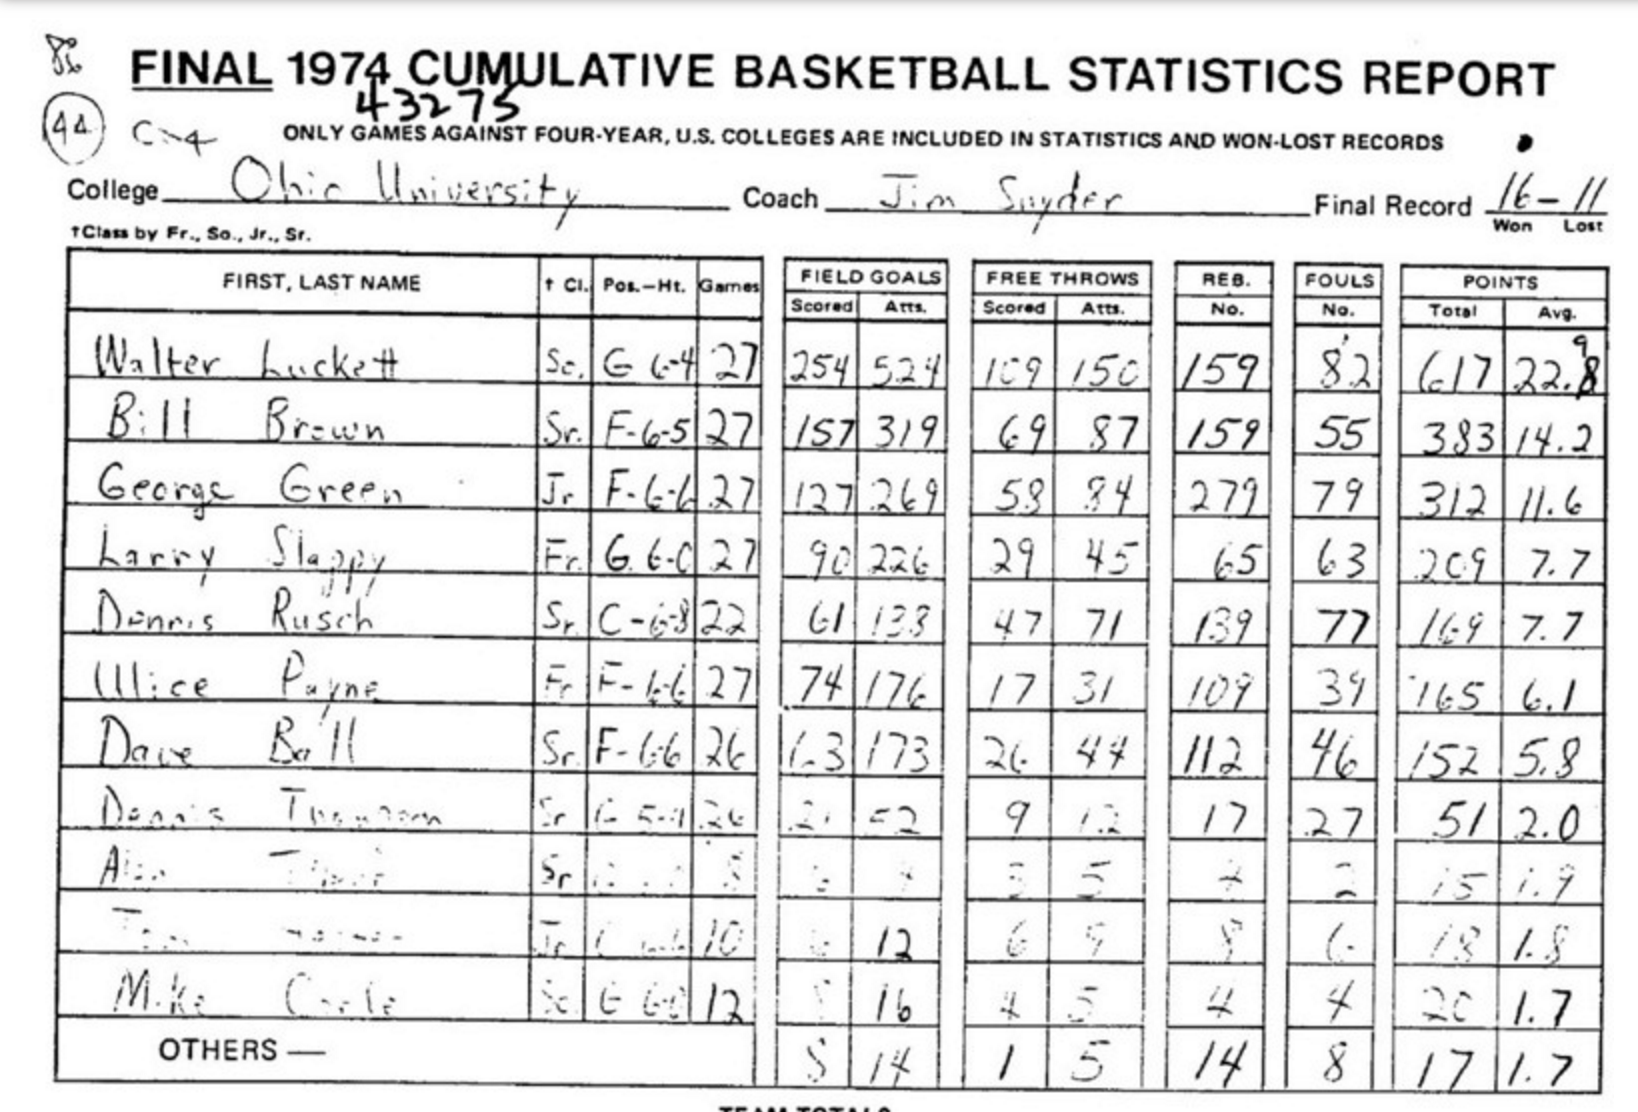 FINAL 1974 CUMULATIVE BASKETBALL STATISTICS REPORT
43275
44 C-4 ONLY GAMES AGAINST FOUR-YEAR, U.S. COLLEGES ARE INCLUDED IN STATISTICS AND WON-LOST RECORDS
College Ohio University Coach Jim Snyder Final Record 16-11
Won Lost
†Class by Fr., So., Jr., Sr.
FIRST, LAST NAME † Cl. Pos.—Ht. Games FIELD GOALS FREE THROWS REB. FOULS POINTS
Scored Atts. Scored Atts. No. No. Total Avg.
Walter Luckett So. G 6-4 27 254 524 109 150 159 82 617 22.9
Bill Brown Sr. F-6-5 27 157 319 69 87 159 55 383 14.2
George Green Jr. F-6-6 27 127 269 58 84 279 79 312 11.6
Larry Slappy Fr. G 6-0 27 90 226 29 45 65 63 209 7.7
Dennis Rusch Sr. C-6-8 22 61 133 47 71 139 77 169 7.7
Ulice Payne Fr F-6-6 27 74 176 17 31 109 39 165 6.1
Dave Ball Sr. F-6-6 26 63 173 26 44 112 46 152 5.8
Dennis Thompson Sr 26 21 52 9 12 17 27 51 2.0
Sr 3 5 2 15 1.9
Jr 10 6 12 6 9 8 6 18 1.8
Mike So. G 6-0 12 8 16 4 5 4 4 20 1.7
OTHERS — 8 14 1 5 14 8 17 1.7
TEAM TOTALS